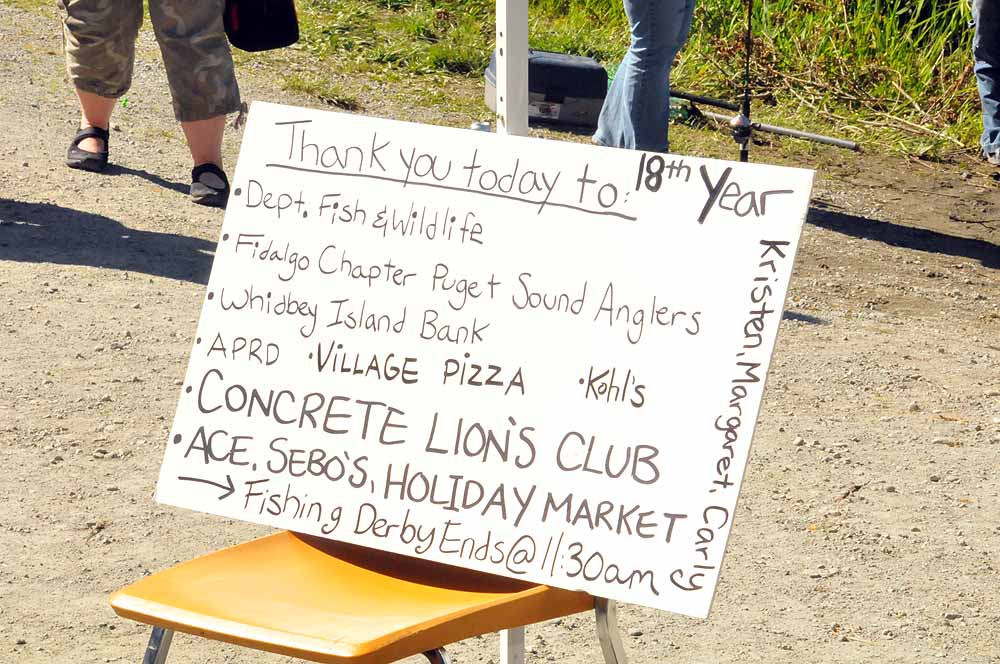 Thank you today to: 18th Year
• Dept. Fish & Wildlife
• Fidalgo Chapter Puget Sound Anglers
• Whidbey Island Bank
• APRD • VILLAGE PIZZA • Kohl's
• CONCRETE LION'S CLUB
• ACE, SEBO'S, HOLIDAY MARKET
→ Fishing Derby Ends @ 11:30am
Kristen, Margaret, Carly